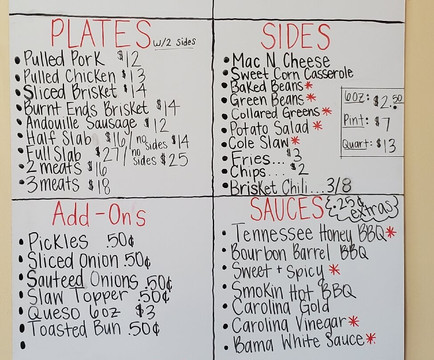 PLATES w/2 sides
• Pulled Pork $12
• Pulled Chicken $13
• Sliced Brisket $14
• Burnt Ends Brisket $14
• Andouille Sausage $12
• Half Slab $16/no sides $14
• Full Slab $27/no sides $25
• 2 meats $16
• 3 meats $18
SIDES
• Mac N Cheese
• Sweet Corn Casserole
• Baked Beans*
• Green Beans*
• Collared Greens*
• Potato Salad*
• Cole Slaw*
• Fries... $3
• Chips... $2
• Brisket Chili... 3/8
6oz: $2.50
Pint: $7
Quart: $13
Add-Ons
• Pickles .50¢
• Sliced Onion .50¢
• Sauteed Onions .50¢
• Slaw Topper .50¢
• Queso 6oz $3
• Toasted Bun .50¢
•
SAUCES {.25¢ extras}
• Tennessee Honey BBQ*
• Bourbon Barrel BBQ
• Sweet + Spicy *
• Smokin Hot BBQ
• Carolina Gold
• Carolina Vinegar*
• Bama White Sauce*